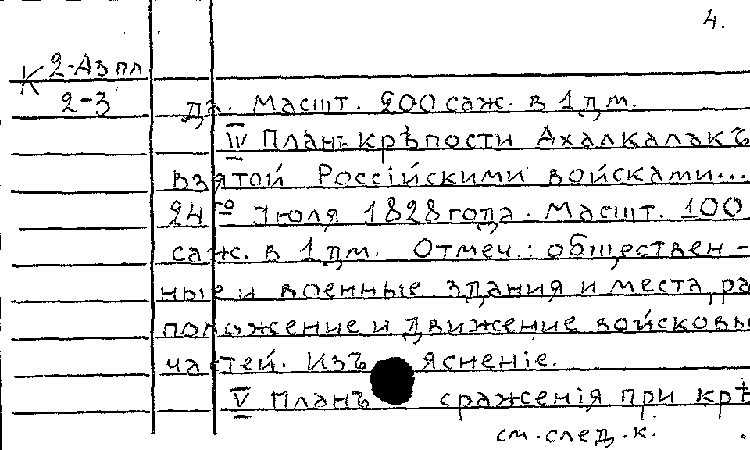 4.
К 2-Аз пл
2-3
да. Масшт. 200 саж. в 1 дм.
IV Планъ крѣпости Ахалкалакъ
взятой Россійскими войсками...
24го Іюля 1828 года. Масшт. 100
саж. в 1 дм. Отмеч.: обществен-
ные и военные здания и места, ра
положение и движение войсковы
частей. Изъяснение.
V Планъ сражения при крѣ
см. след. к.